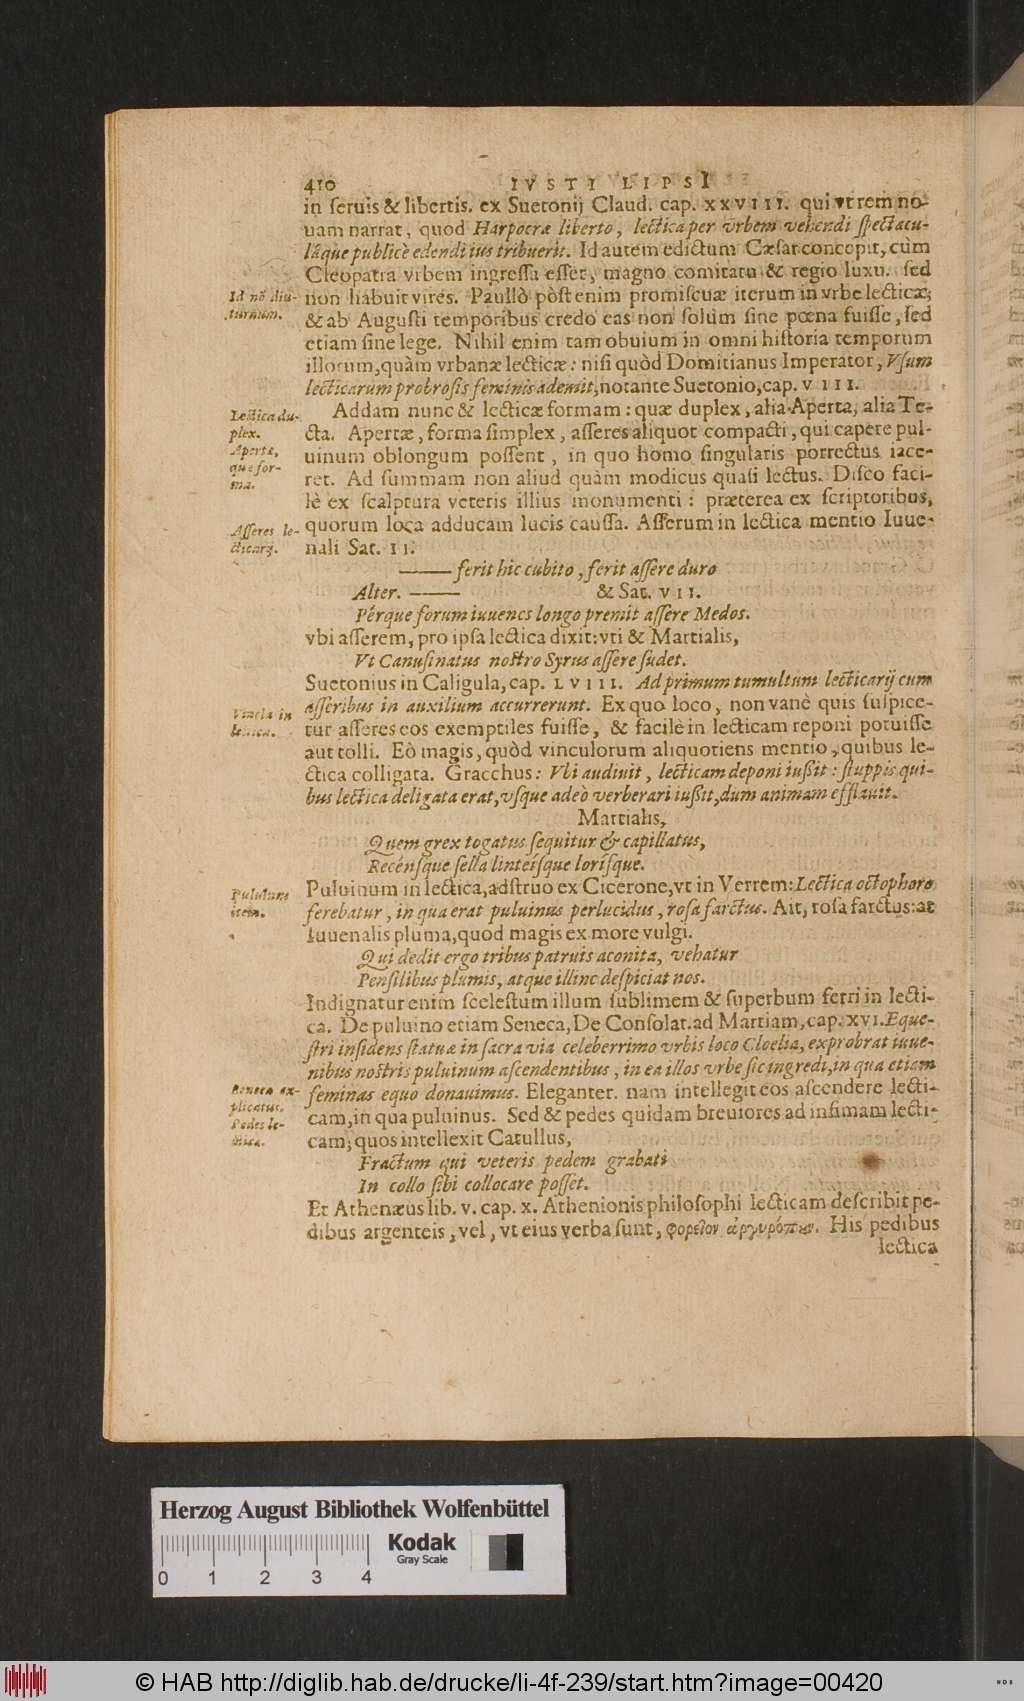 410 IVSTI LIPSI
in seruis & libertis. ex Suetonij Claud. cap. XXVIII. qui vt rem no-
uam narrat, quod Harpocræ liberto, lectica per vrbem vehendi spectacu-
láque publicè edendi ius tribuerit. Id autem edictum Cæsar concepit, cùm
Cleopatra vrbem ingressa esset, magno comitatu & regio luxu. sed
non habuit vires. Paullò pòst enim promiscuæ iterum in vrbe lecticæ;
& ab Augusti temporibus credo eas non solùm sine pœna fuisse, sed
etiam sine lege. Nihil enim tam obuium in omni historia temporum
illorum, quàm vrbanæ lecticæ: nisi quòd Domitianus Imperator, Vsum
lecticarum probrosis feminis ademit, notante Suetonio, cap. VIII.
Id nō diu-
turnum.
Addam nunc & lecticæ formam: quæ duplex, alia Aperta, alia Te-
cta. Apertæ, forma simplex, asseres aliquot compacti, qui capere pul-
uinum oblongum possent, in quo homo singularis porrectus iace-
ret. Ad summam non aliud quàm modicus quasi lectus. Disco faci-
lè ex scalptura veteris illius monumenti: præterea ex scriptoribus,
quorum loca adducam lucis caussa. Asserum in lectica mentio Iuue-
nali Sat. II.
Lectica du-
plex.
Apertæ,
quæ for-
ma.
Asseres le-
cticarij.
—— ferit hic cubito, ferit assere duro
Alter. —— & Sat. VII.
Pérque forum iuuenes longo premit assere Medos.
vbi asserem, pro ipsa lectica dixit: vti & Martialis,
Vt Canusinatus nostro Syrus assere sudet.
Suetonius in Caligula, cap. LVIII. Ad primum tumultum lecticarij cum
asseribus in auxilium accurrerunt. Ex quo loco, non vanè quis suspice-
tur asseres eos exemptiles fuisse, & facilè in lecticam reponi potuisse
aut tolli. Eò magis, quòd vinculorum aliquotiens mentio, quibus le-
ctica colligata. Gracchus: Vbi audiuit, lecticam deponi iussit: stuppis qui-
bus lectica deligata erat, vsque adeò verberari iussit, dum animam efflauit.
Vincla in
lectica.
Martialis,
Quem grex togatus sequitur & capillatus,
Recénsque sella linteísque lorísque.
Puluinum in lectica, adstruo ex Cicerone, vt in Verrem: Lectica octophoro
ferebatur, in qua erat puluinus perlucidus, rosa farctus. Ait, rosa farctus: at
Iuuenalis pluma, quod magis ex more vulgi.
Puluinus
item.
Qui dedit ergo tribus patruis aconita, vehatur
Pensilibus plumis, atque illinc despiciat nos.
Indignatur enim scelestum illum sublimem & superbum ferri in lecti-
ca. De puluino etiam Seneca, De Consolat. ad Martiam, cap. XVI. Eque-
stri insidens statuæ in sacra via celeberrimo vrbis loco Cloelia, exprobrat iuue-
nibus nostris puluinum ascendentibus, in ea illos vrbe sic ingredi, in qua etiam
feminas equo donauimus. Eleganter. nam intellegit eos ascendere lecti-
cam, in qua puluinus. Sed & pedes quidam breuiores ad infimam lecti-
cam; quos intellexit Catullus,
Seneca ex-
plicatus.
Pedes le-
cticæ.
Fractum qui veteris pedem grabati
In collo sibi collocare posset.
Et Athenæus lib. V. cap. X. Athenionis philosophi lecticam describit pe-
dibus argenteis, vel, vt eius verba sunt, φορεῖον ἀργυρόπουν. His pedibus
lectica
Herzog August Bibliothek Wolfenbüttel
Kodak
Gray Scale
0 1 2 3 4
© HAB http://diglib.hab.de/drucke/li-4f-239/start.htm?image=00420